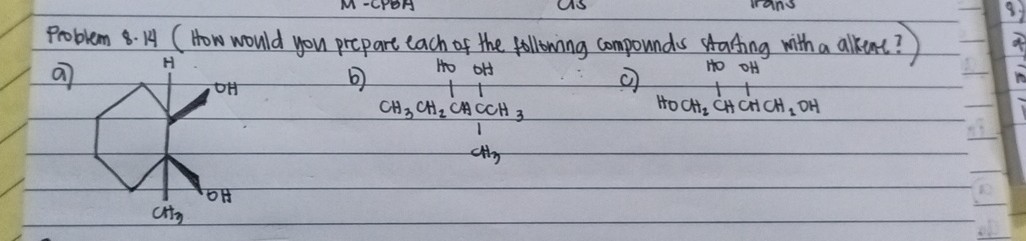 M-CPBA cis trans
Problem 8.14 (How would you prepare each of the following compounds starting with a alkene?)
a) H OH OH CH3
b) HO OH
CH3 CH2 CH CCH3
CH3
c) HO OH
HOCH2 CH CH CH2 OH